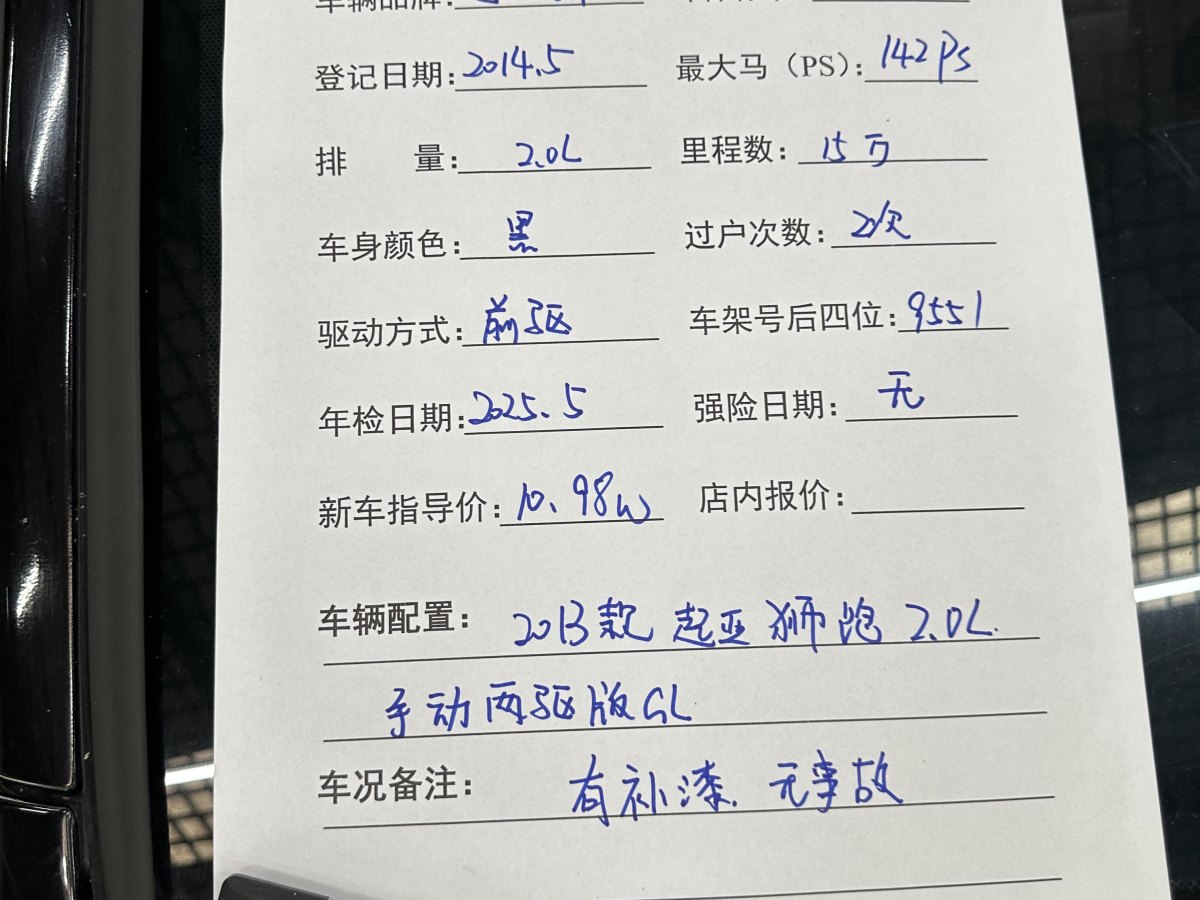 车辆品牌:
登记日期:2014.5 最大马（PS）:142PS
排 量:2.0L 里程数:15万
车身颜色:黑 过户次数:2次
驱动方式:前驱 车架号后四位:9551
年检日期:2025.5 强险日期:无
新车指导价:10.98W 店内报价:
车辆配置: 2013款 起亚狮跑 2.0L
手动两驱版GL
车况备注: 有补漆. 无事故